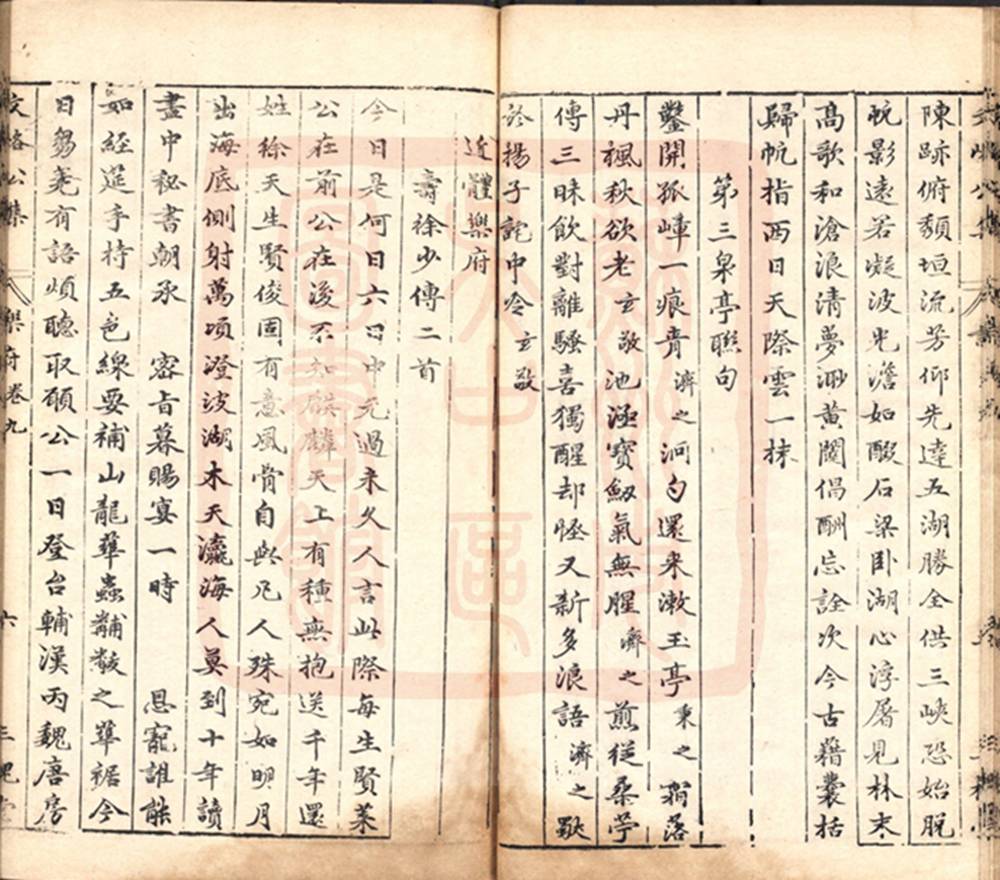 陳跡俯頹垣流芳仰先達五湖勝全供三峽恐始脫
帆影遠若凝波光澹如醱石梁臥湖心浮屠見林末
高歌和滄浪清夢渺黃闥倡酬忘詮次今古藉囊括
歸帆指西日天際雲一抹
第三泉亭聯句
鑿開孤嶂一痕青濟之泂勺還来漱玉亭秉之翦落
丹楓秋欲老玄敬池涵寶劔氣無腥濟之煎従桑苧
傳三昧飲對離騷喜獨醒却怪又新多浪語濟之歐
於揚子詫中泠玄敬
近體樂府
壽徐少傅二首
今日是何日六日中元過来久人言此際每生賢萊
公在前公在後不知麒麟天上有種無抱送千年還
姓徐天生賢俊固有意風骨自與凡人殊宛如明月
出海底側射萬頃澄波湖木天瀛海人莫到十年讀
盡中秘書朝承 密旨暮賜宴一時 恩寵誰能
如經筵手持五色線要補山龍華蟲黼黻之華裾今
日芻蕘有語煩聽取願公一日登台輔漢丙魏唐房
文恪公集 樂府卷九 六 三槐堂